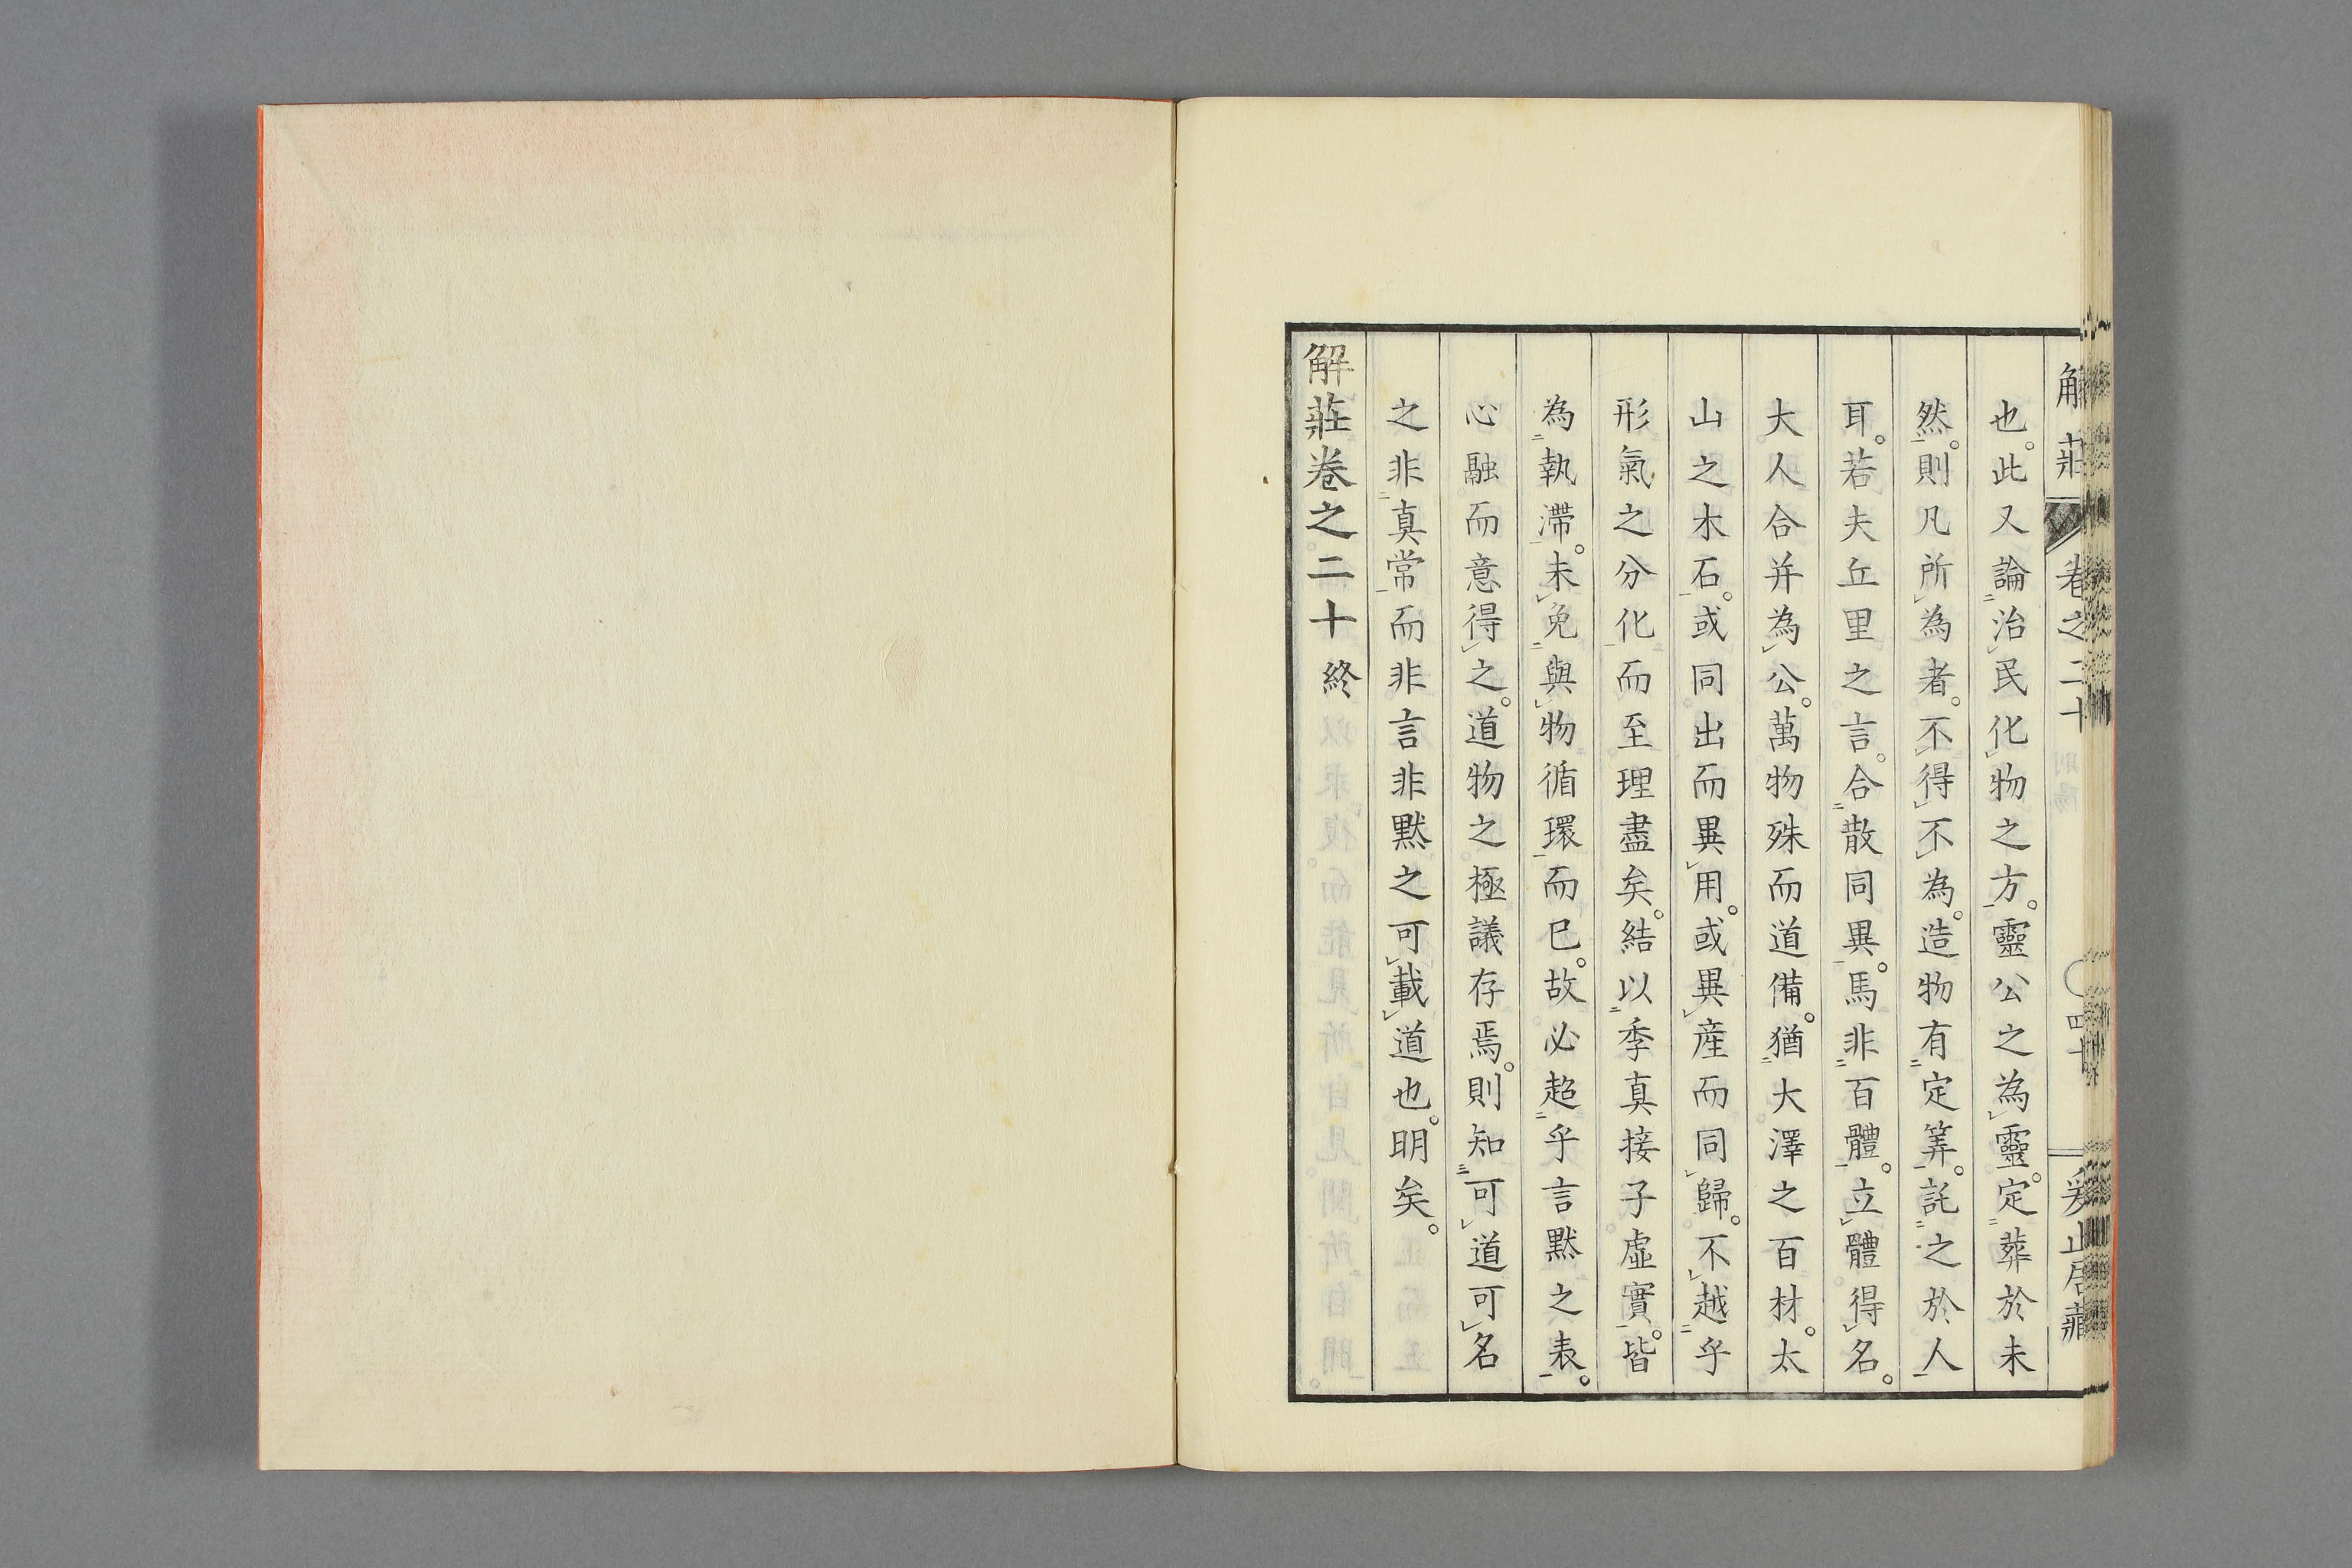 解莊 卷之二十 四十 奚止居藏
也。此又論治民化物之方。靈公之為靈。定葬於未
然。則凡所為者。不得不為。造物有定筭。託之於人
耳。若夫丘里之言。合散同異。馬非百體。立體得名。
大人合并為公。萬物殊而道備。猶大澤之百材。太
山之木石。或同出而異用。或異産而同歸。不越乎
形氣之分化而至理盡矣。結以季真接子虛實。皆
為執滯。未免與物循環而已。故必超乎言默之表。
心融而意得之。道物之極議存焉。則知可道可名
之非真常而非言非默之可載道也。明矣。
解莊卷之二十終